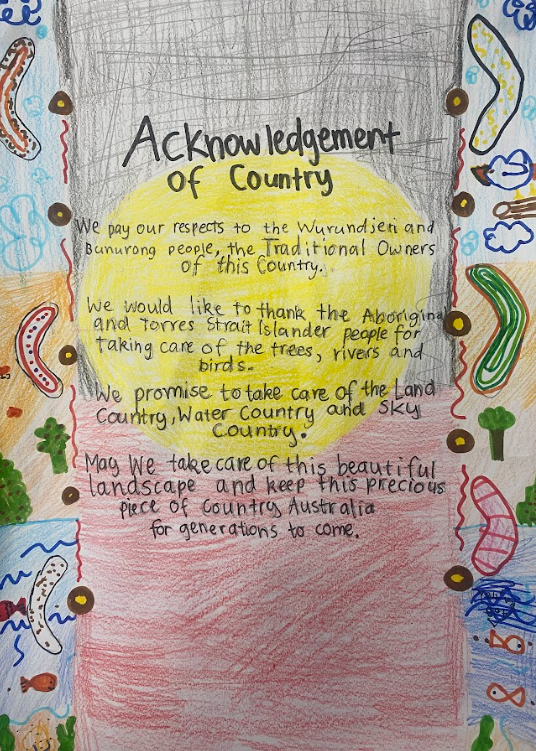 Acknowledgement
of Country
We pay our respects to the Wurundjeri and
Bunurong people, the Traditional Owners
of this Country.
We would like to thank the Aboriginal
and Torres Strait Islander people for
taking care of the trees, rivers and
birds.
We promise to take care of the Land
Country, Water Country and Sky
Country.
May We take care of this beautiful
landscape and keep this precious
piece of Country Australia
for generations to come.